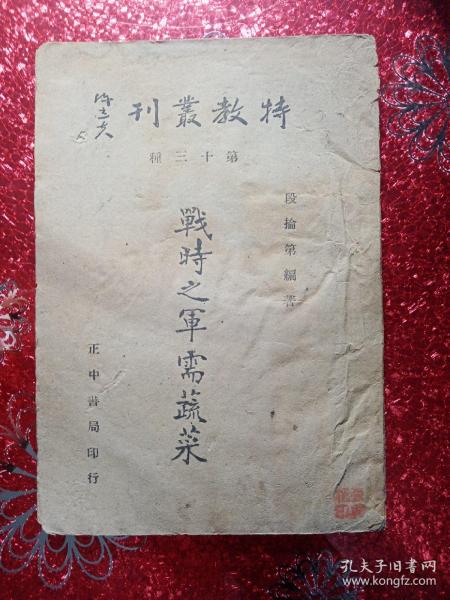 特教叢刊
第十三種
段掄第編著
戰時之軍需蔬菜
正中書局印行
孔夫子旧书网
www.kongfz.com